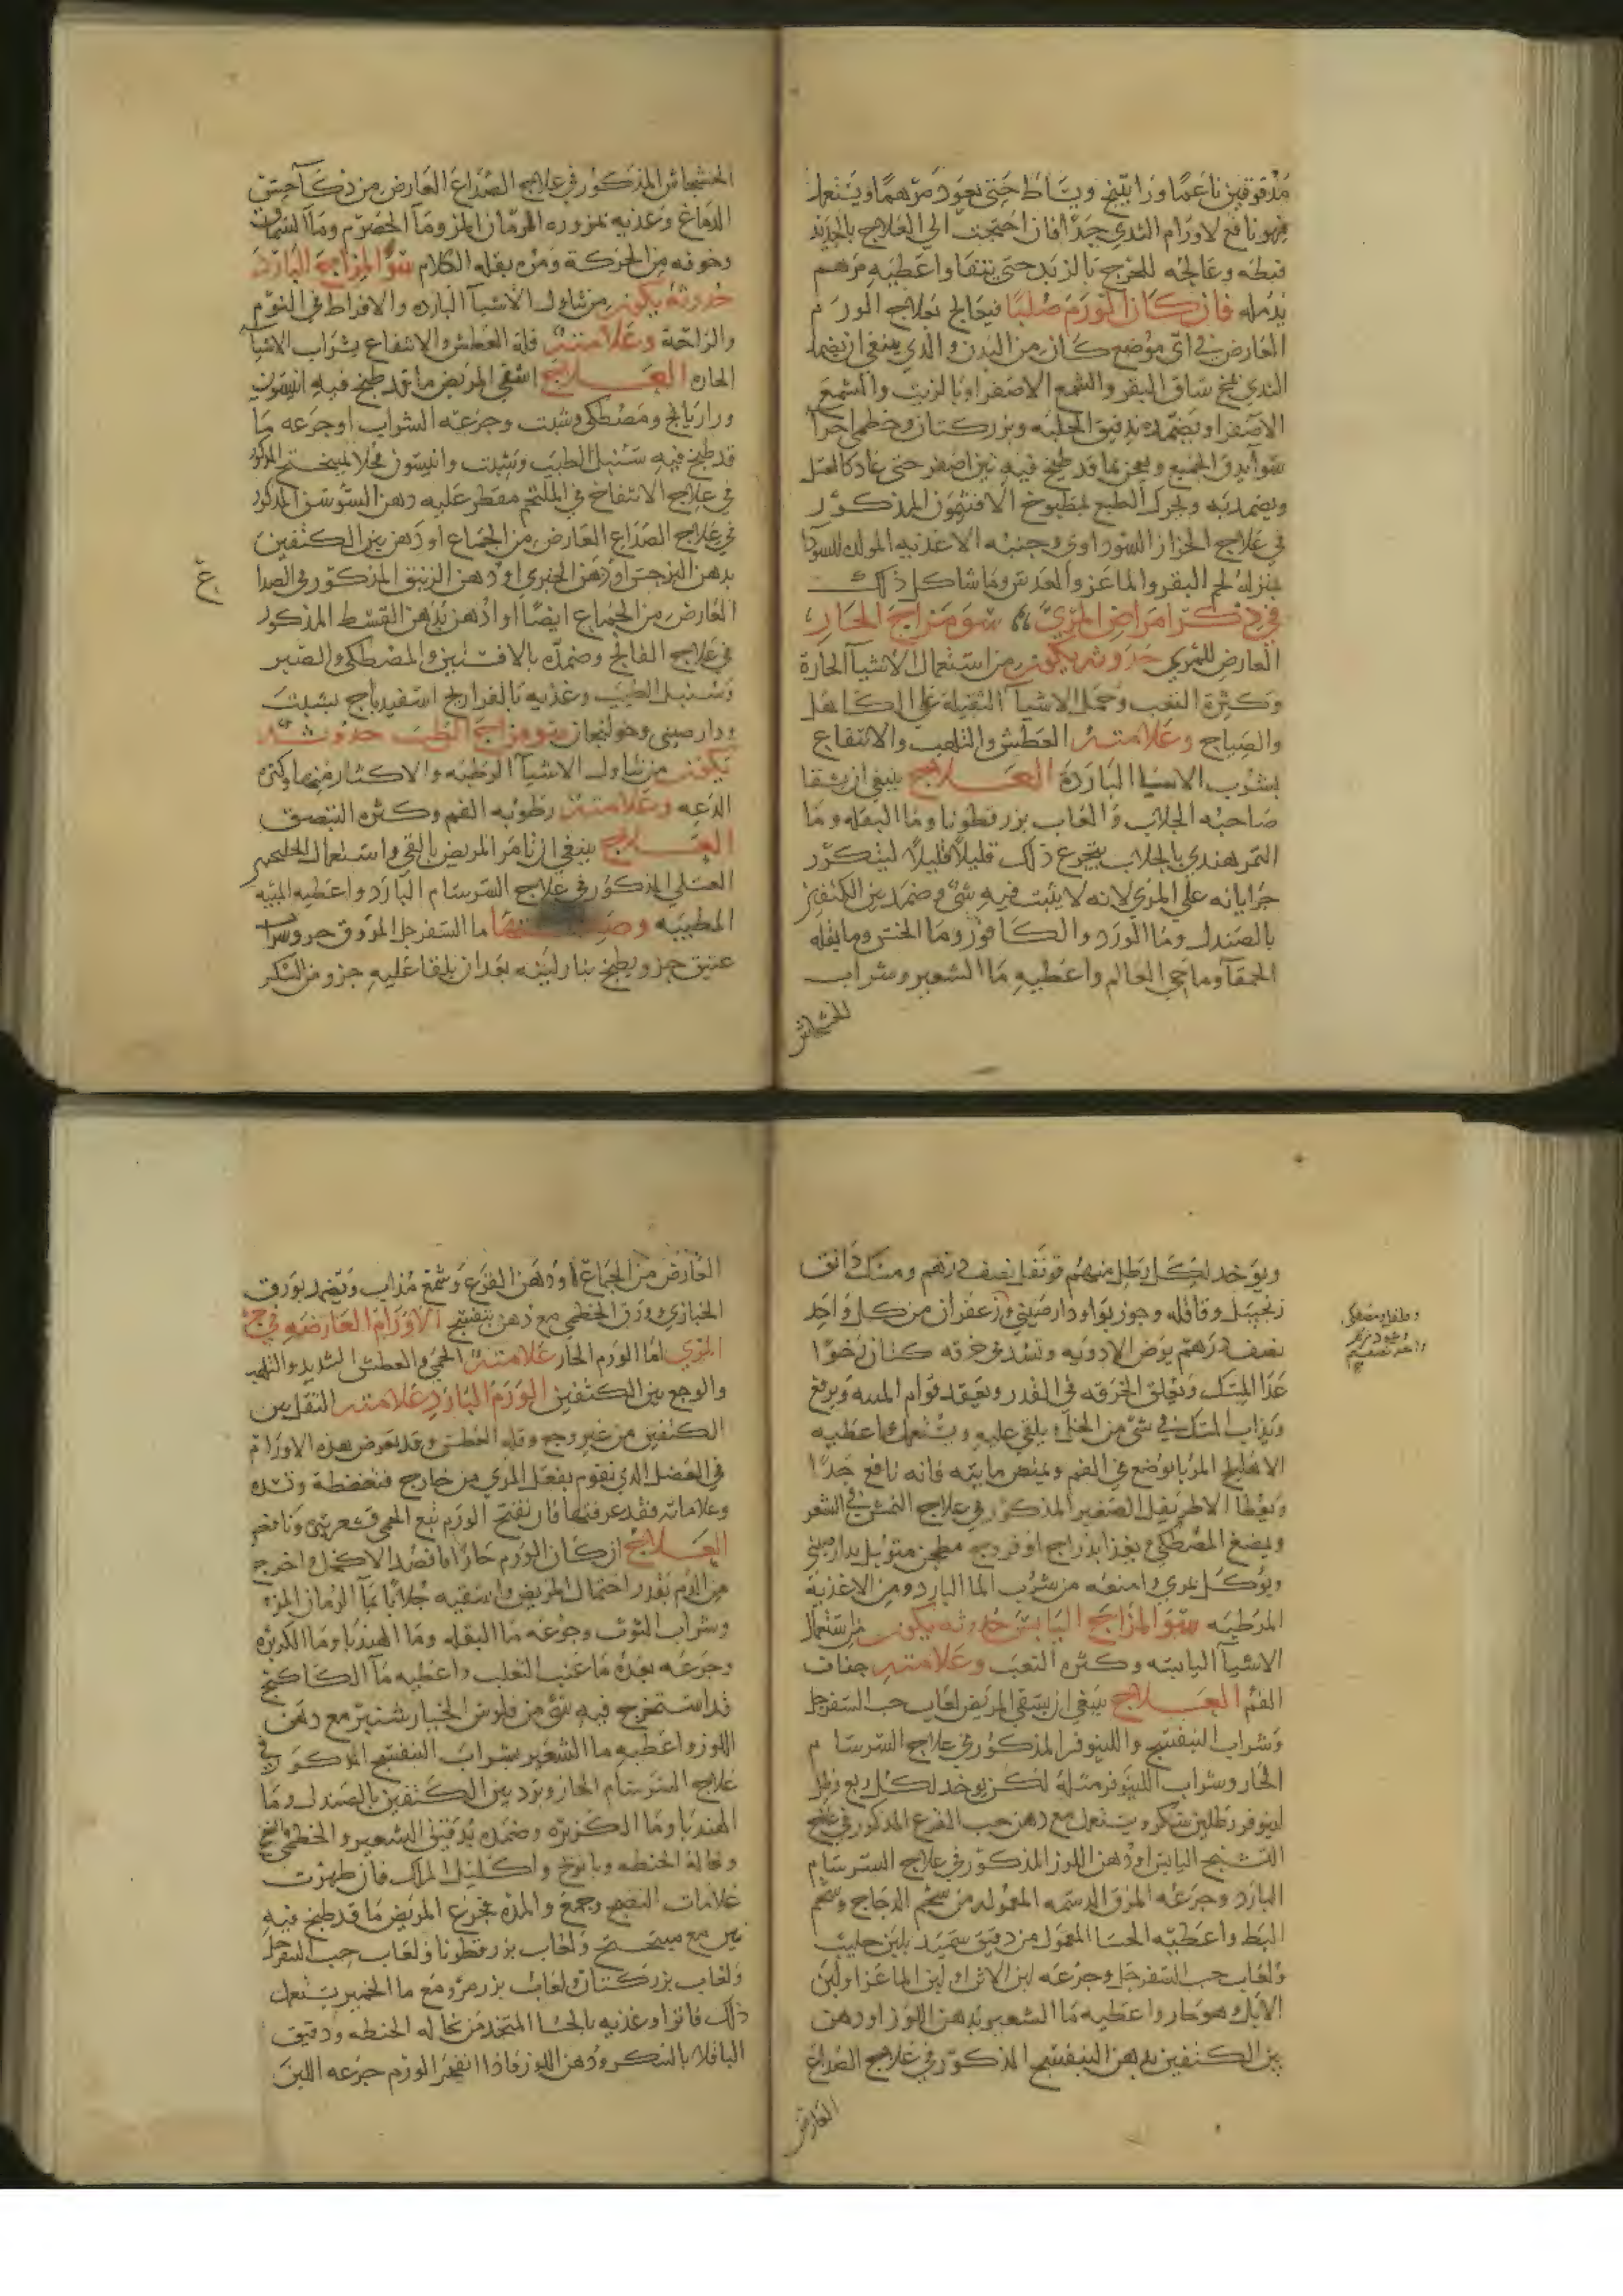 مدقوقين ناعما وراتينج ويساط حتى يعود مرهما ويستعمل
فهو نافع لاورام الثدي جدا فان احتجت الي العلاج بالحديد
فبطه وعالجه للخرج بالزبد حتى يتنقا واعطيه مرهم
يدمله فان كان الورم صلبا فيعالج بعلاج الورم
العارض في اي موضع كان من البدن والذي ينبغي ان يضمد
الثدي بمخ ساق البقر والشمع الاصفر او بالزيت والشمع
الاصفر او يضمده بدقيق الحلبه وبزر كتان وخطمي اجزا
سوا يدق الجميع ويعجن بما قد طبخ فيه تين اصفر حتى عاد كالعسل
ويضمد به ويحرك الطبع بمطبوخ الافتيمون المذكور
في علاج الحزاز السوداوي وجنبه الاغذيه المولده للسودا
بمنزلة لحم البقر والماعز والعدس وما شاكل ذلك
في ذكر امراض المري سو مزاج الحار
العارض للمري حدوثه يكون من استعمال الاشيا الحارة
وكثرة التعب وحمل الاشيا الثقيلة على الكاهل
والصياح وعلامته العطش والتلهب والانتفاع
بشرب الاشيا الباردة العلاج ينبغي ان يسقا
صاحبه الجلاب والعاب بزر قطونا وما البقله وما
التمر هندي بالجلاب يتجرع ذلك قليلا قليلا ليتكرر
جرايانه على المري لانه لا يثبت فيه شي وضمد بين الكتفين
بالصندل وما الورد والكافور وما الخس وما بقله
الحمقا وما حي العالم واعطيه ما الشعير وشراب
الخشخاش
الخشخاش المذكور في علاج الصداع العارض من ذكا حس
الدماغ وغذيه بمزوره الرمان المز وما الحصرم وما السماق
وخوفه من الحركة ومره بقله الكلام سو المزاج البارد
حدوثه يكون من تناول الاشيا البارده والافراط في النوم
والراحة وعلامته قلة العطش والانتفاع بشراب الاشيا
الحاره العلاج اسقي المريض ما قد طبخ فيه انيسون
ورازيانج ومصطكي وشبت وجرعه الشراب او جرعه ما
قد طبخ فيه سنبل الطيب وشبت وانيسون محلا بميبختج المذكور
في علاج الانتفاخ في الملتحم مقطر عليه دهن السوسن المذكور
في علاج الصداع العارض من الجماع او دهن بين الكتفين
بدهن النرجس او دهن الخيري او دهن الزنبق المذكور في الصدا
العارض من الجماع ايضا او ادهن بدهن القسط المذكور
في علاج الفالج وضمده بالافسنتين والمصطكي والصبر
وسنبل الطيب وغذيه بالفراريج اسفيدباج بشبت
ودارصيني وخولنجان سو مزاج الرطب حدوثه
يكون من تناول الاشيا الرطبه والاكثار منها وكثرة
الدعه وعلامته رطوبه الفم وكثره التبصق
العلاج ينبغي ان نامر المريض بالقي واستعمال الجلنجبين
العسلي المذكور في علاج السرسام البارد واعطيه الميبه
المطيبه ما السفرجل المروق جزو شراب
عتيق جزو يطبخ بنار لينه بعد ان يلقا عليه جزو من السكر
غ
ويوخد لكل رطل منهم قرنفل نصف درهم ومسك دانق
زنجبيل وقاقله وجوز بوا ودارصيني وزعفران من كل واحد
نصف درهم يرض الادويه وتشد في خرقه كتان رخوا
عدا المسك وتعلق الخرقه في القدر ويعقد قوام الميبه ويرفع
ويذاب المسك في شي من الخل ويلقي عليه ويستعمل واعطيه
الاهليلج المربا يوضع في الفم ويمتص مايته فانه نافع جدا
ويعطا الاطريفل الصغير المذكور في علاج النمش في الشعر
ويمضغ المصطكي ويغذا بدراج او فروج مطجن متوبل بدارصيني
ويوكل بمري وامنعه من شرب الما البارد ومن الاغذية
المرطبه سو المزاج اليابس حدوثه يكون من استعمال
الاشيا اليابسه وكثره التعب وعلامته جفاف
الفم العلاج ينبغي ان يسقي المريض لعاب حب السفرجل
وشراب البنفسج واللينوفر المذكور في علاج السرسام
الحار وشراب اللينوفر مثله لكن يوخد لكل ربع رطل
لينوفر رطلين سكر ويستعمل مع دهن حب القرع المذكور في علاج
التشنج اليابس او دهن اللوز المذكور في علاج السرسام
البارد وجرعه المرق الدسمه المعموله من شحم الدجاج وشحم
البط واعطيه الحسا المعمول من دقيق سميد بلبن حليب
ولعاب حب السفرجل وجرعه لبن الاتن او لبن الماعز او لبن
الابل هو حار واعطيه ما الشعير بدهن اللوز او دهن
بين الكتفين بدهن البنفسج المذكور في علاج الصداع
العارض
العارض من الجماع او دهن القرع وشمع مذاب ويضمد بورق
الخبازي وورق الخطمي مع دهن بنفسج الاورام العارضه في
المري اما الورم الحار علامته الحمي والعطش الشديد والتلهب
والوجع بين الكتفين الورم البارد علامته الثقل بين
الكتفين من غير وجع وقله العطش وقد يعرض هذه الاورام
في العضل الذي تقوم بفعل المري من خارج
وعلاماته فقد عرفتها فان تفتح الورم تبع الحمي قشعريره ونافض
العلاج ان كان الورم حارا فافصد الاكحل واخرج
من الدم بقدر احتمال المريض واسقيه جلابا بما الرمان المز
وشراب التوت وجرعه ما البقله وما الهندبا وما الكزبره
وجرعه بعده ما عنب الثعلب واعطيه ما الكاكنج
قد استخرج فيه شي من فلوس الخيار شنبر مع دهن
اللوز واعطيه ما الشعير بشراب البنفسج المذكور في
علاج السرسام الحار وبرد بين الكتفين بالصندل وما
الهندبا وما الكزبره وضمده بدقيق الشعير والخطمي
ونخالة الحنطه وبابونج واكليل الملك فان ظهرت
علامات النضج وجمع والمده فجرع المريض ما قد طبخ فيه
تين مع ميبختج ولعاب بزر قطونا ولعاب حب السفرجل
ولعاب بزر كتان ولعاب بزر مرو مع ما الخمير يستعمل
ذلك فاترا وغذيه بالحسا المتخذ من نخاله الحنطه ودقيق
الباقلا بالسكر ودهن اللوز فاذا انفجر الورم جرعه اللبن